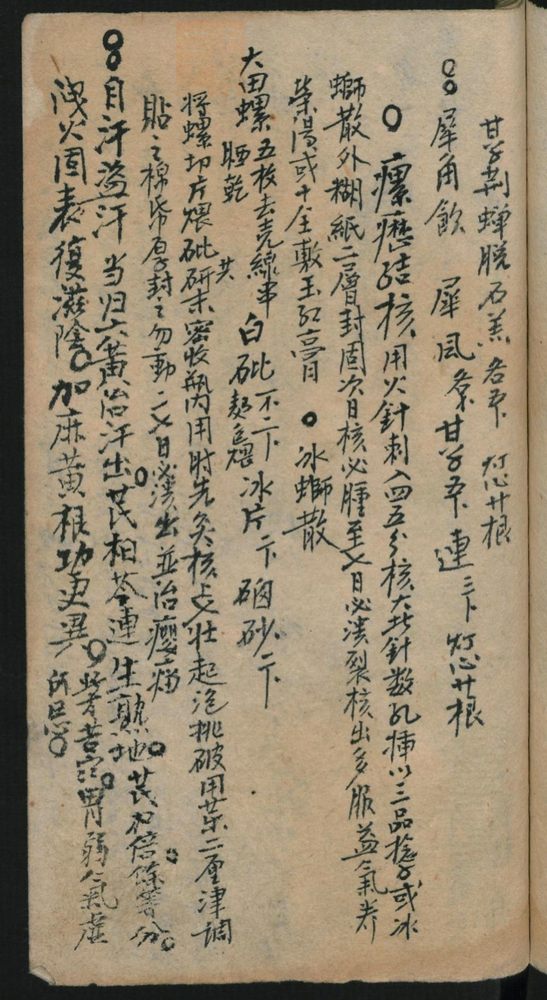 甘草荆蝉脱石羔各五卜 灯心廿根
犀角飲 犀 甘草五卜 連三卜 灯心廿根
瘰癧結核 用火針刺入四五分核大者針数孔挿以三品捻子或冰
螄散外糊紙二層封固次日核必腫至七日必潰裂核出多服益氣养
荣湯或十全敷玉紅膏 冰螄散
大田螺五枚去壳線串晒乾 白砒不二卜麪裹煨 冰片一卜 硇砂二卜
将螺切片煨砒研末共密收瓶内用时先灸核上七壮起泡挑破用藥二厘津調
貼之棉帋厚封之勿動二七日必潰出並治瘿瘤
自汗盗汗 当归六黄治汗出芪柏芩連生熟地芪加倍餘等分
洩火固表復滋陰加麻黄根功更異 苦寒胃弱人氣虛
所忌